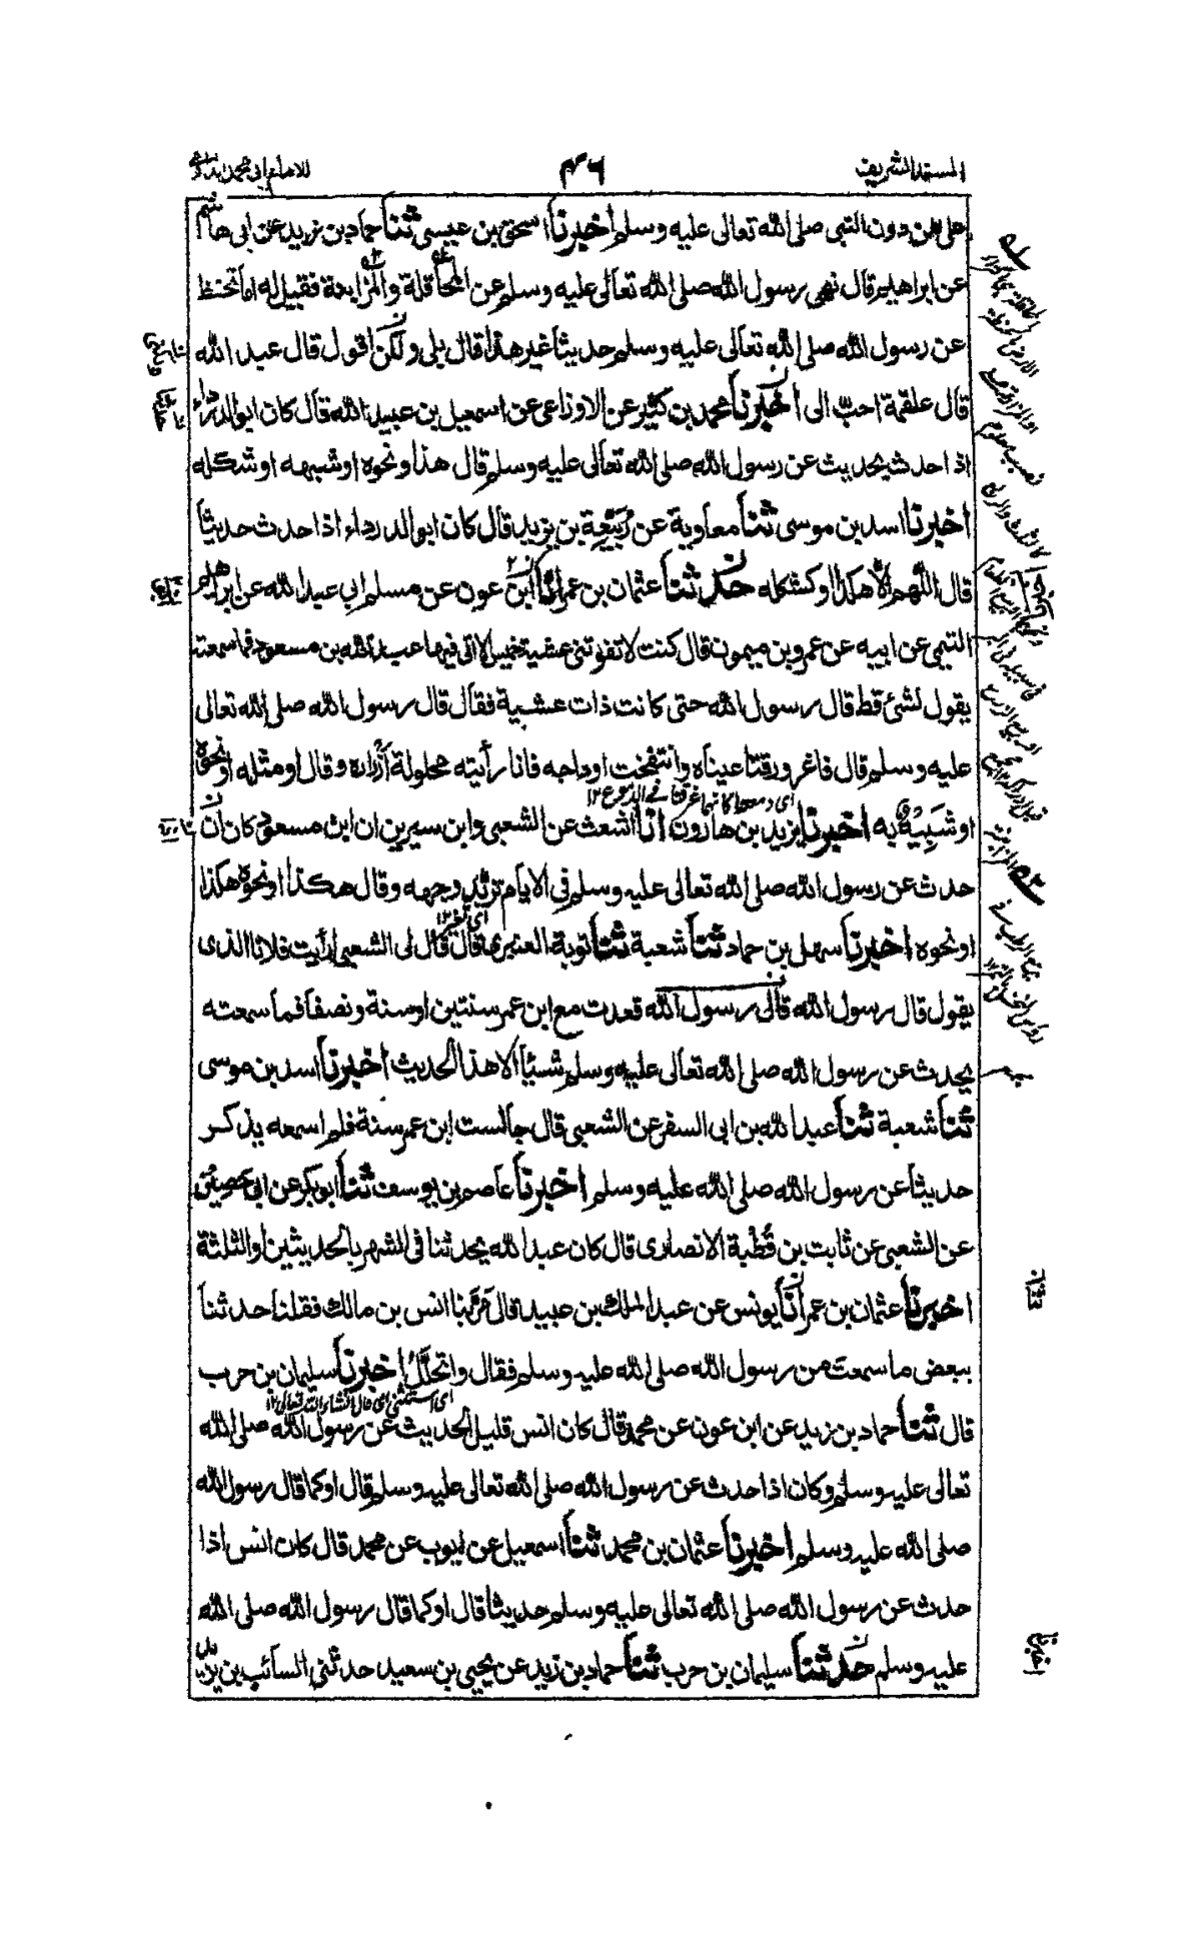 المسند الشريف
٤٦
للامام ابي محمد
على من دون النبى صلى الله تعالى عليه وسلم اخبرنا اسحق بن عيسى ثنا حماد بن زيد عن ابى هاشم
عن ابراهيم قال نهى رسول الله صلى الله تعالى عليه وسلم عن المحاقلة والمزابنة فقيل له اما تحفظ
عن رسول الله صلى الله تعالى عليه وسلم حديثا غير هذا قال بلى ولكن اقول قال عبد الله
قال علقمة احبّ الى اخبرنا محمد بن كثير عن الاوزاعى عن اسمعيل بن عبيد الله قال كان ابو الدرداء
اذا حدث بحديث عن رسول الله صلى الله تعالى عليه وسلم قال هذا ونحوه او شبهه او شكله
اخبرنا اسد بن موسى ثنا معاوية عن ربيعة بن يزيد قال كان ابو الدرداء اذا حدث حديثا
قال اللهم الا هكذا او كشكله حدثنا عثمان بن عمر انا ابن عون عن مسلم ابي عبد الله عن ابراهيم
التيمى عن ابيه عن عمرو بن ميمون قال كنت لا تفوتنى عشية خميس الا اتى فيها عبد الله بن مسعود فما سمعته
يقول لشئ قط قال رسول الله حتى كانت ذات عشية فقال قال رسول الله صلى الله تعالى
عليه وسلم قال فاغرورقتا عيناه وانتفخت اوداجه فانا رأيته محلولة أزراره وقال او مثله او نحوه
اى دمعها كانها غرقتا فى الدموع ١٢
او شبيه به اخبرنا يزيد بن هارون انا اشعث عن الشعبى وابن سيرين ان ابن مسعود كان ان
حدث عن رسول الله صلى الله تعالى عليه وسلم فى الايام تربد وجهه وقال هكذا او نحوه هكذا
اى تغير ١٢
او نحوه اخبرنا سهل بن حماد ثنا شعبة ثنا توبة العنبرى قال قال لى الشعبى ارأيت فلانا الذى
يقول قال رسول الله قال رسول الله قعدت مع ابن عمر سنتين او سنة ونصفا فما سمعته
يحدث عن رسول الله صلى الله تعالى عليه وسلم شيئا الا هذا الحديث اخبرنا اسد بن موسى
ثنا شعبة ثنا عبد الله بن ابى السفر عن الشعبى قال جالست ابن عمر سنة فلم اسمعه يذكر
حديثا عن رسول الله صلى الله عليه وسلم اخبرنا عاصم بن يوسف ثنا ابو بكر عن ابى حصين
عن الشعبى عن ثابت بن قطبة الانصارى قال كان عبد الله يحدثنا فى الشهر بالحديثين او الثلثة
اخبرنا عثمان بن عمر انا يونس عن عبد الملك بن عبيد قال مر بنا انس بن مالك فقلنا حدثنا
ببعض ما سمعت من رسول الله صلى الله عليه وسلم فقال واتحلل اخبرنا سليمان بن حرب
اى استثنى اى قال انشاء الله تعالى ١٢
قال ثنا حماد بن زيد عن ابن عون عن محمد قال كان انس قليل الحديث عن رسول الله صلى الله
تعالى عليه وسلم وكان اذا حدث عن رسول الله صلى الله تعالى عليه وسلم قال او كما قال رسول الله
صلى الله عليه وسلم اخبرنا عثمان بن محمد ثنا اسمعيل عن ايوب عن محمد قال كان انس اذا
حدث عن رسول الله صلى الله تعالى عليه وسلم حديثا قال او كما قال رسول الله صلى الله
عليه وسلم حدثنا سليمان بن حرب ثنا حماد بن زيد عن يحيى بن سعيد حدثنى السائب بن يزيد